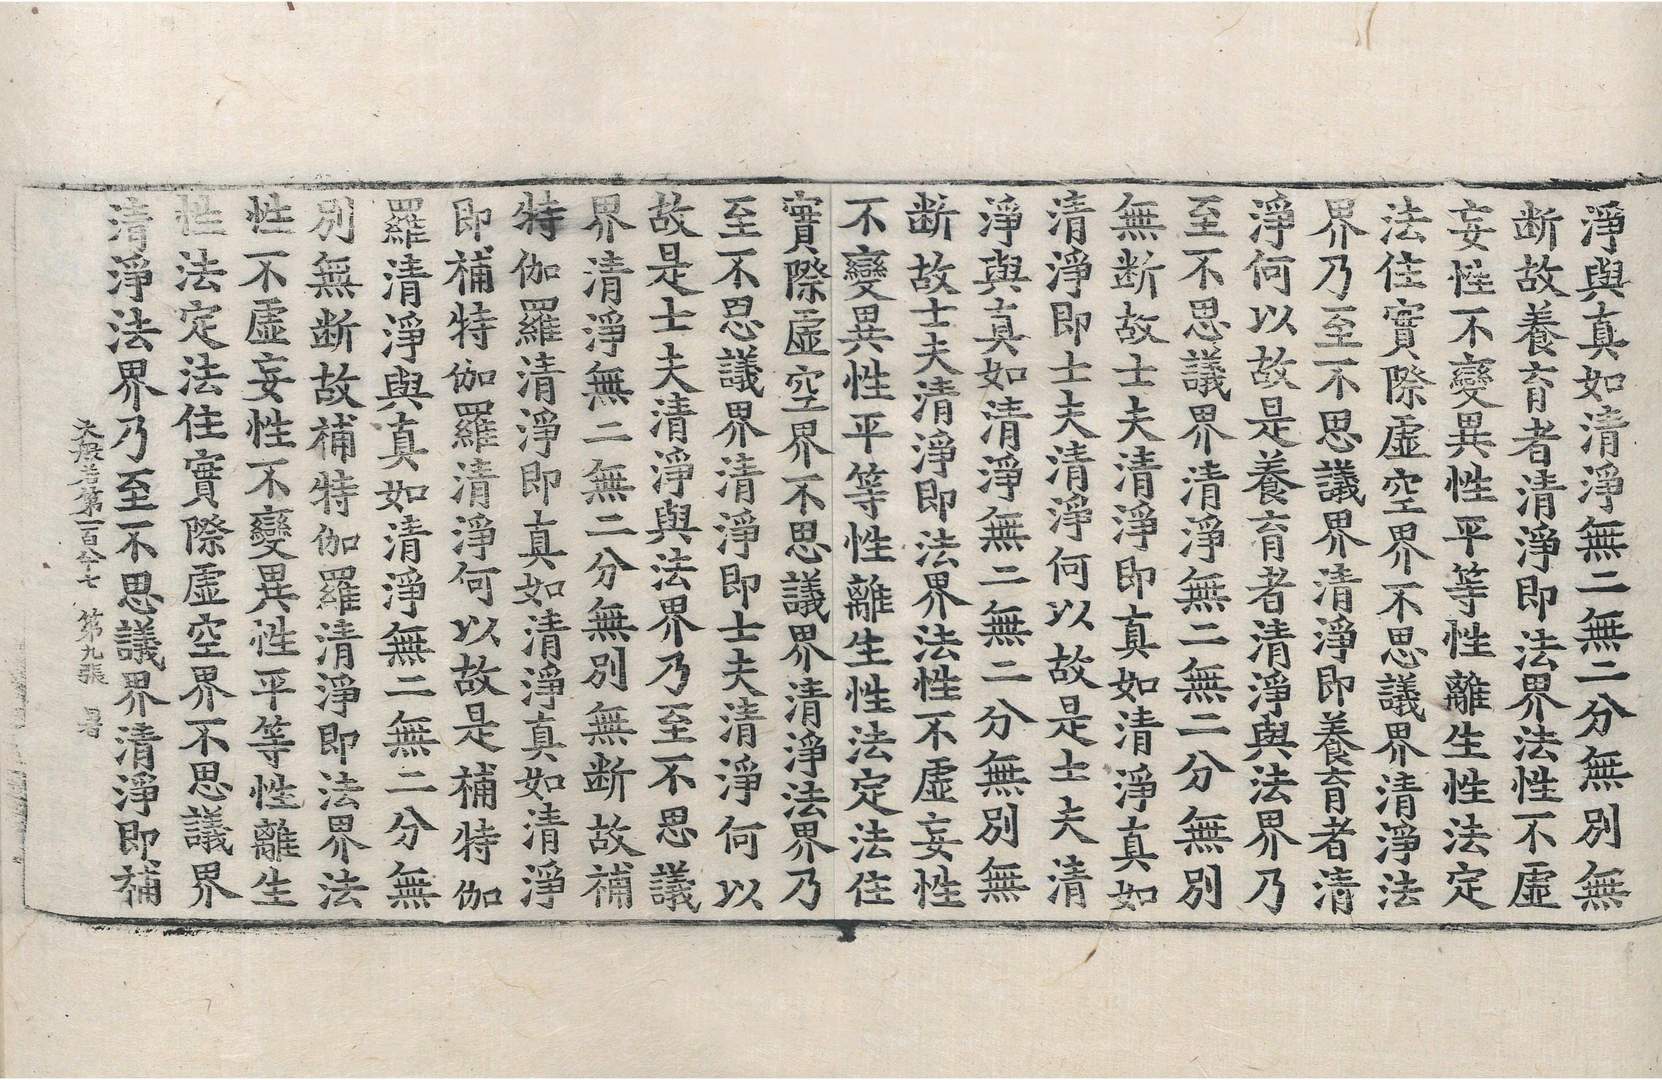 淨與真如清淨無二無二分無別無
断故養育者清淨即法界法性不虛
妄性不變異性平等性離生性法定
法住實際虛空界不思議界清淨法
界乃至不思議界清淨即養育者清
淨何以故是養育者清淨與法界乃
至不思議界清淨無二無二分無別
無断故士夫清淨即真如清淨真如
清淨即士夫清淨何以故是士夫清
淨與真如清淨無二無二分無別無
断故士夫清淨即法界法性不虛妄性
不變異性平等性離生性法定法住
實際虛空界不思議界清淨法界乃
至不思議界清淨即士夫清淨何以
故是士夫清淨與法界乃至不思議
界清淨無二無二分無別無断故補
特伽羅清淨即真如清淨真如清淨
即補特伽羅清淨何以故是補特伽
羅清淨與真如清淨無二無二分無
別無断故補特伽羅清淨即法界法
性不虛妄性不變異性平等性離生
性法定法住實際虛空界不思議界
清淨法界乃至不思議界清淨即補
大般若第一百八十七 第九張 暑